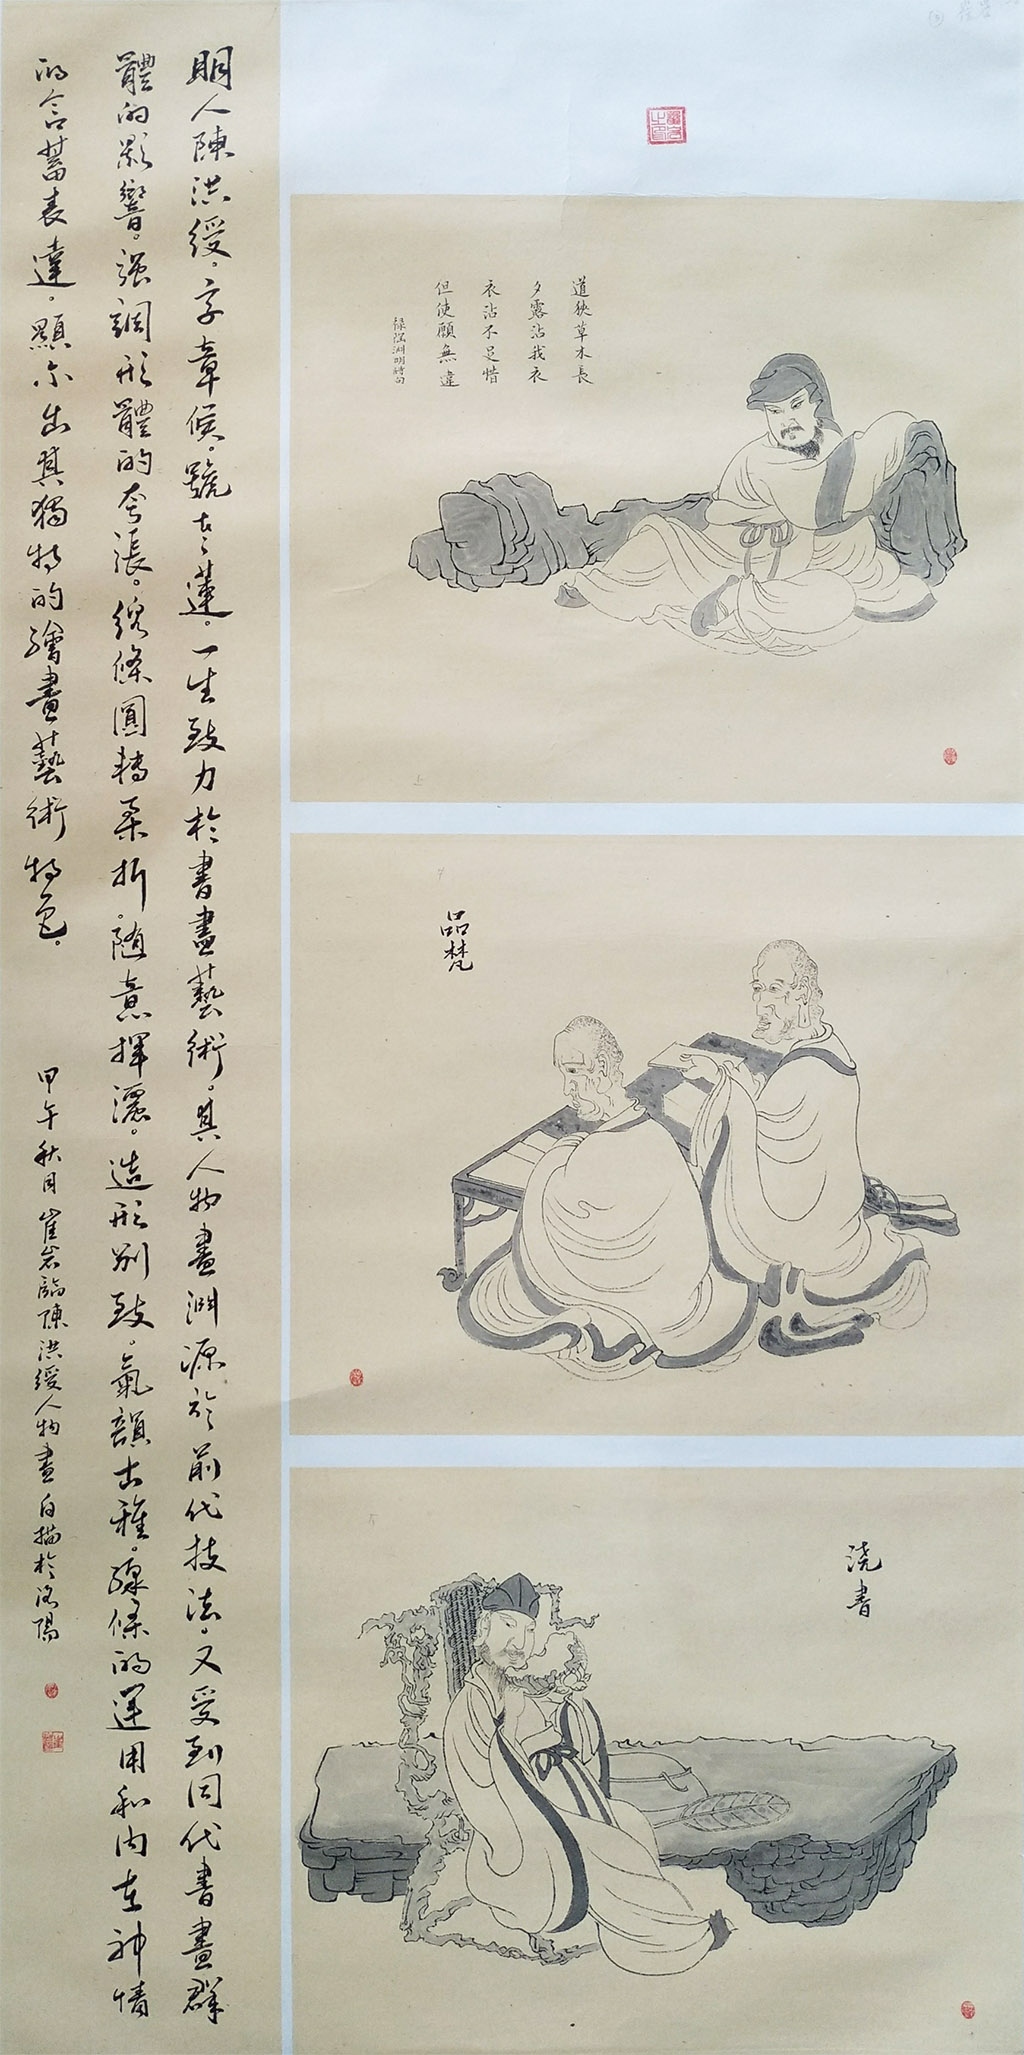 明人陳洪綬，字章侯。號老蓮。一生致力於書畫藝術。其人物畫淵源於前代技法，又受到同代書畫群
體的影響。强調形體的夸張。線條圓轉柔折。随意揮灑。造形别致，氣韻古雅。線條的運用和内在神情
的含蓄表達。顯示出其獨特的繪畫藝術特色。
甲午秋月崔岩臨陳洪綬人物畫白描於洛陽
道狹草木長
夕露沾我衣
衣沾不足惜
但使願無違
録陶淵明詩句
品梵
浇書